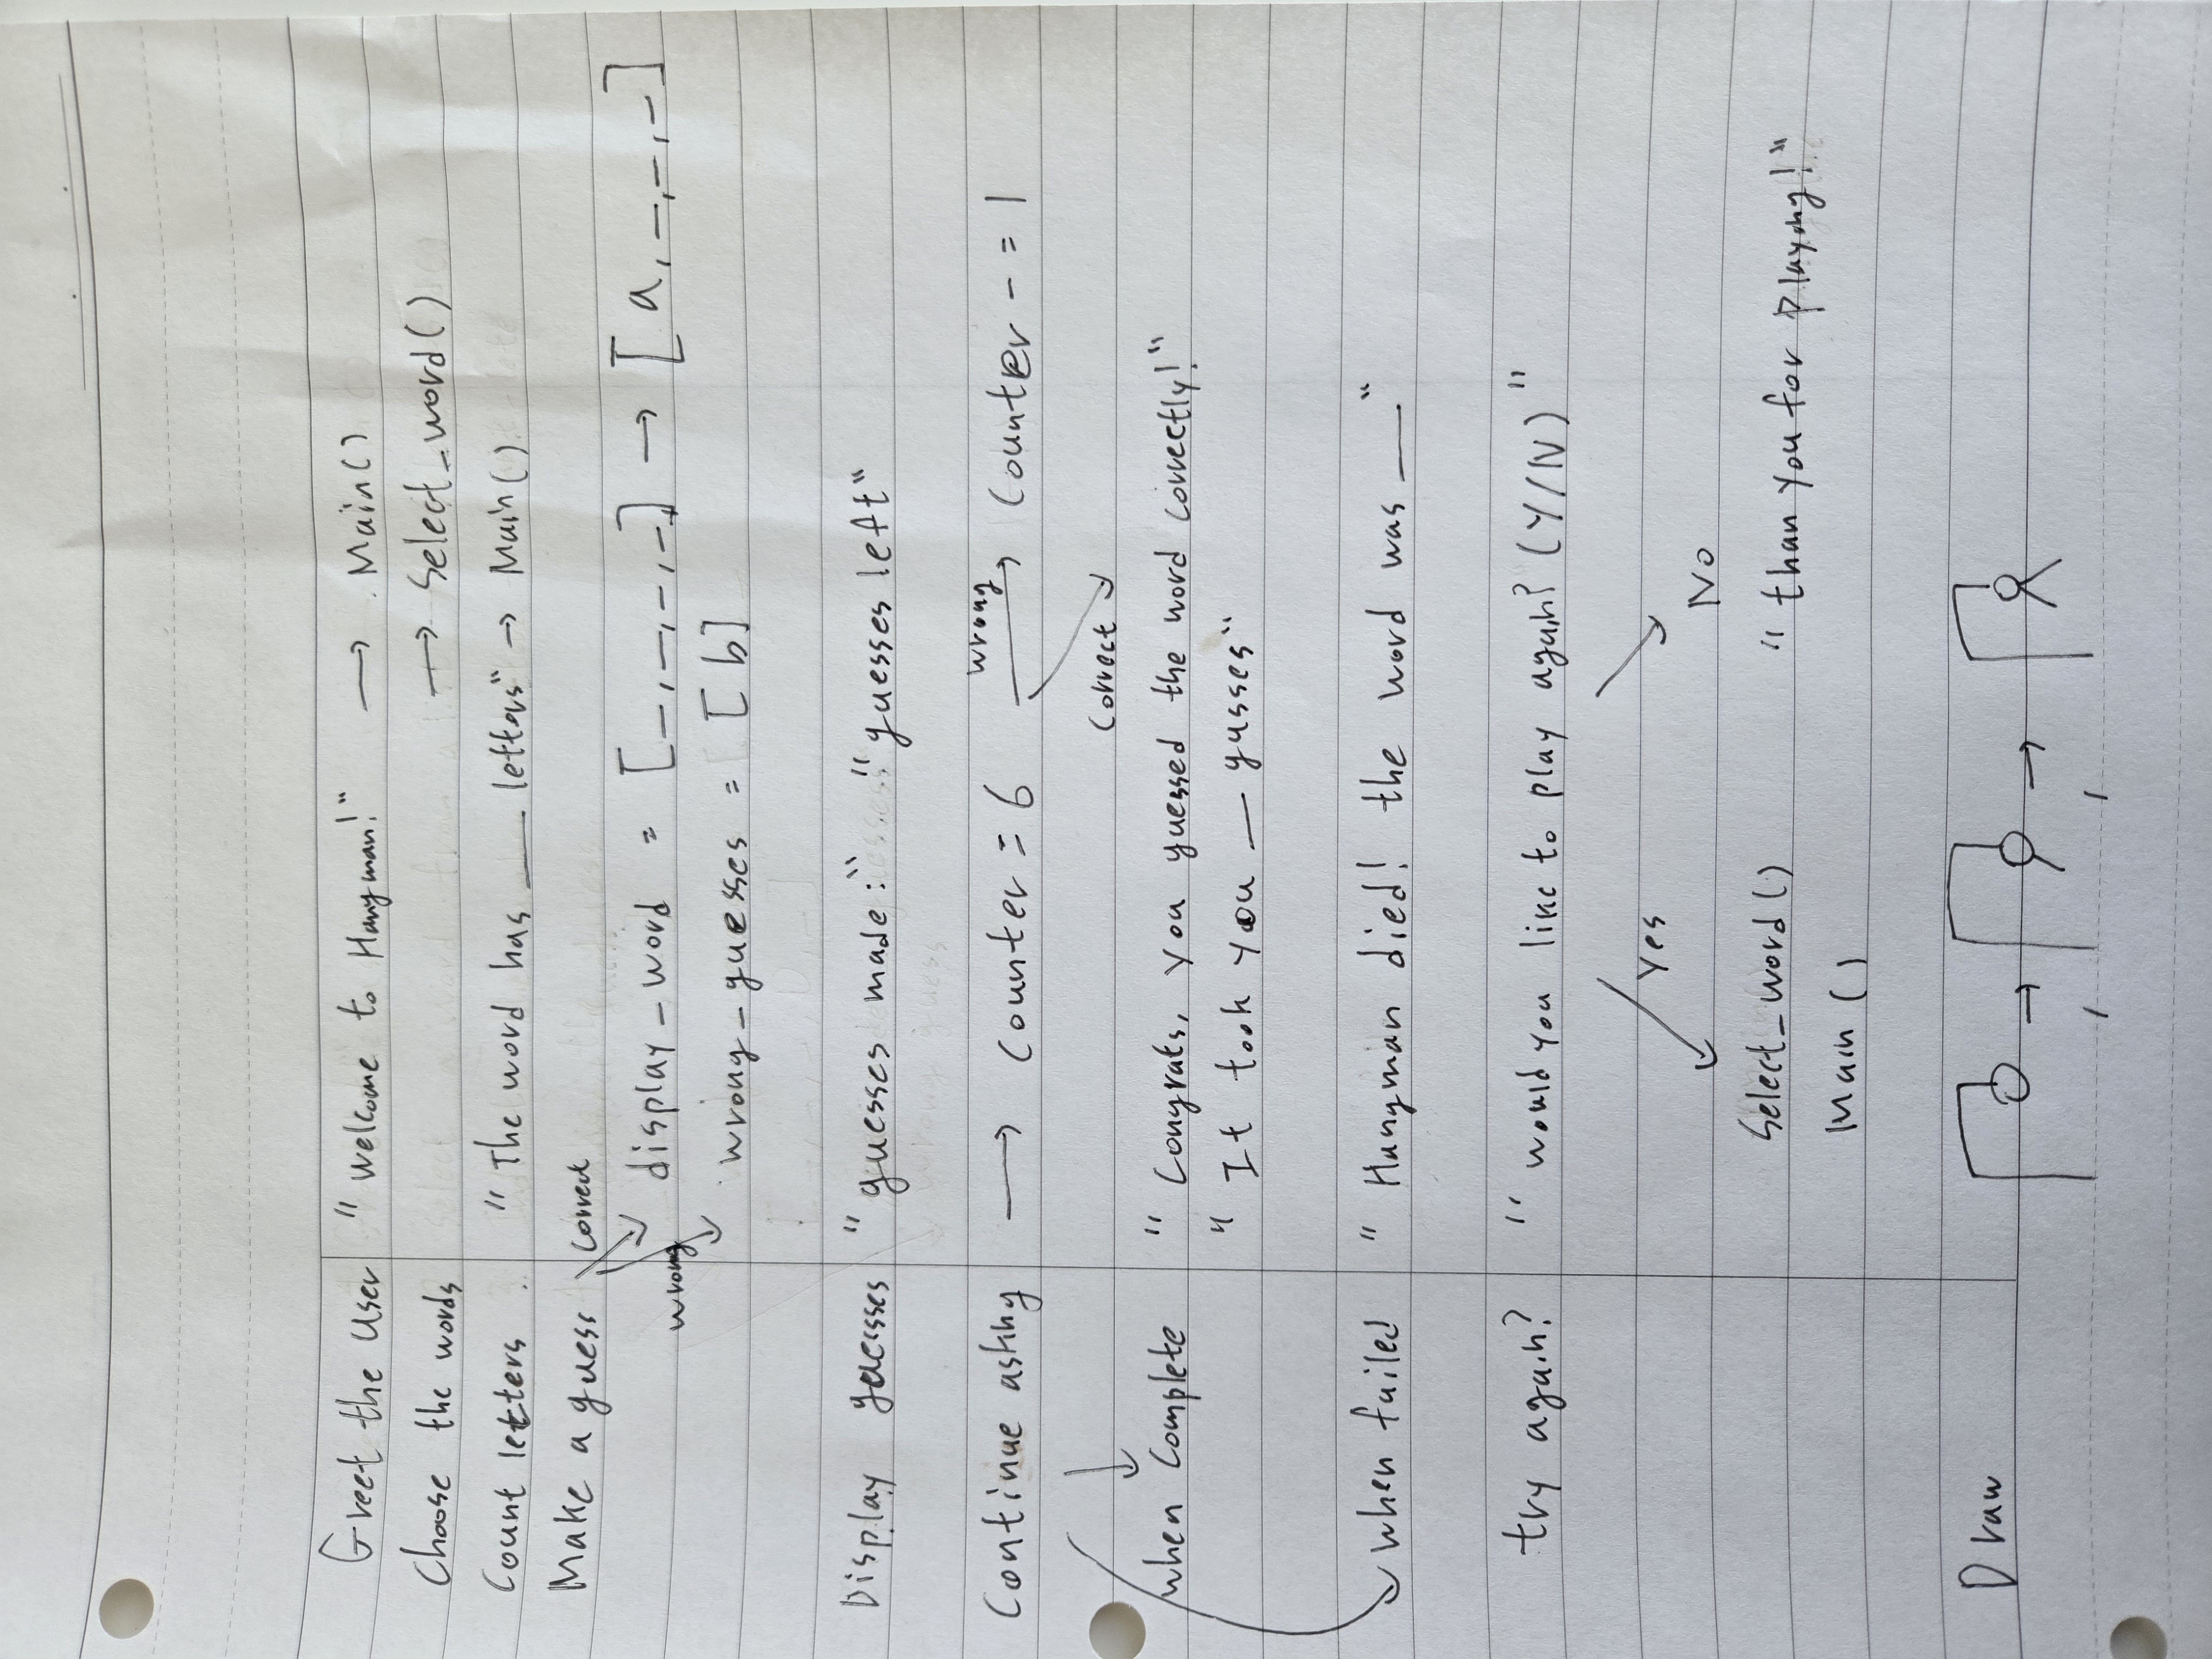 Greet the User "Welcome to Hangman!" → Main()
Choose the words → Select_word()
Count letters "The word has ___ letters" → Main()
Make a guess correct
wrong display_word = [_,_,_,_] → [a,_,_,_]
wrong_guesses = [b]
Display guesses "guesses made:" "guesses left"
wrong
Continue asking → counter = 6 → counter -= 1
correct
when complete "Congrats, you guessed the word correctly!"
"It took you __ gusses"
when failed "Hangman died! the word was ___"
try again? "would you like to play again? (Y/N)"
Yes
No
Select_word() "than you for playing!"
Main()
Draw